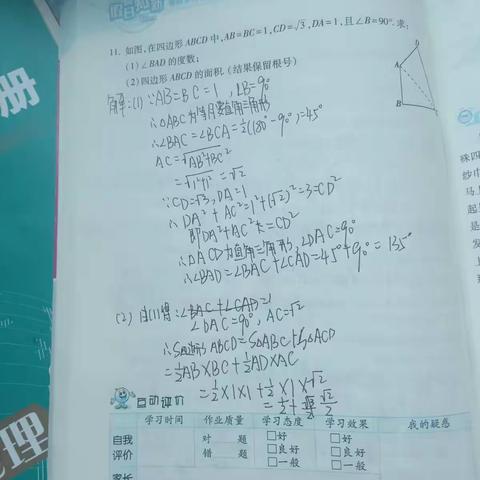 11. 如图,在四边形 ABCD 中,AB=BC=1,CD=√3,DA=1,且∠B=90°.求:
(1)∠BAD 的度数;
(2)四边形 ABCD 的面积.(结果保留根号)
D
A
B
解:(1)∵AB=BC=1,∠B=90°
∴△ABC为等腰直角三角形
∴∠BAC=∠BCA=½(180°-90°)=45°
AC=√AB²+BC²
=√1²+1²=√2
∵CD=√3,DA=1
∴DA²+AC²=1²+(√2)²=3=CD²
即DA²+AC²=CD²
∴△ACD为直角三角形,∠DAC=90°
∴∠BAD=∠BAC+∠CAD=45°+90°=135°
(2)由(1)得:∠BAC+∠CAD=
∠DAC=90°,AC=√2
∴S四边形ABCD=S△ABC+S△ACD
=½AB×BC+½AD×AC
=½×1×1+½×1×√2
=½+√2/2
自动评价
学习时间 作业质量 学习态度 学习效果 我的疑惑
自我评价 对 题 □好 □好
错 题 □良好 □良好
□一般 □一般
家长
册
理
株四
纱巾
马
起
是
发